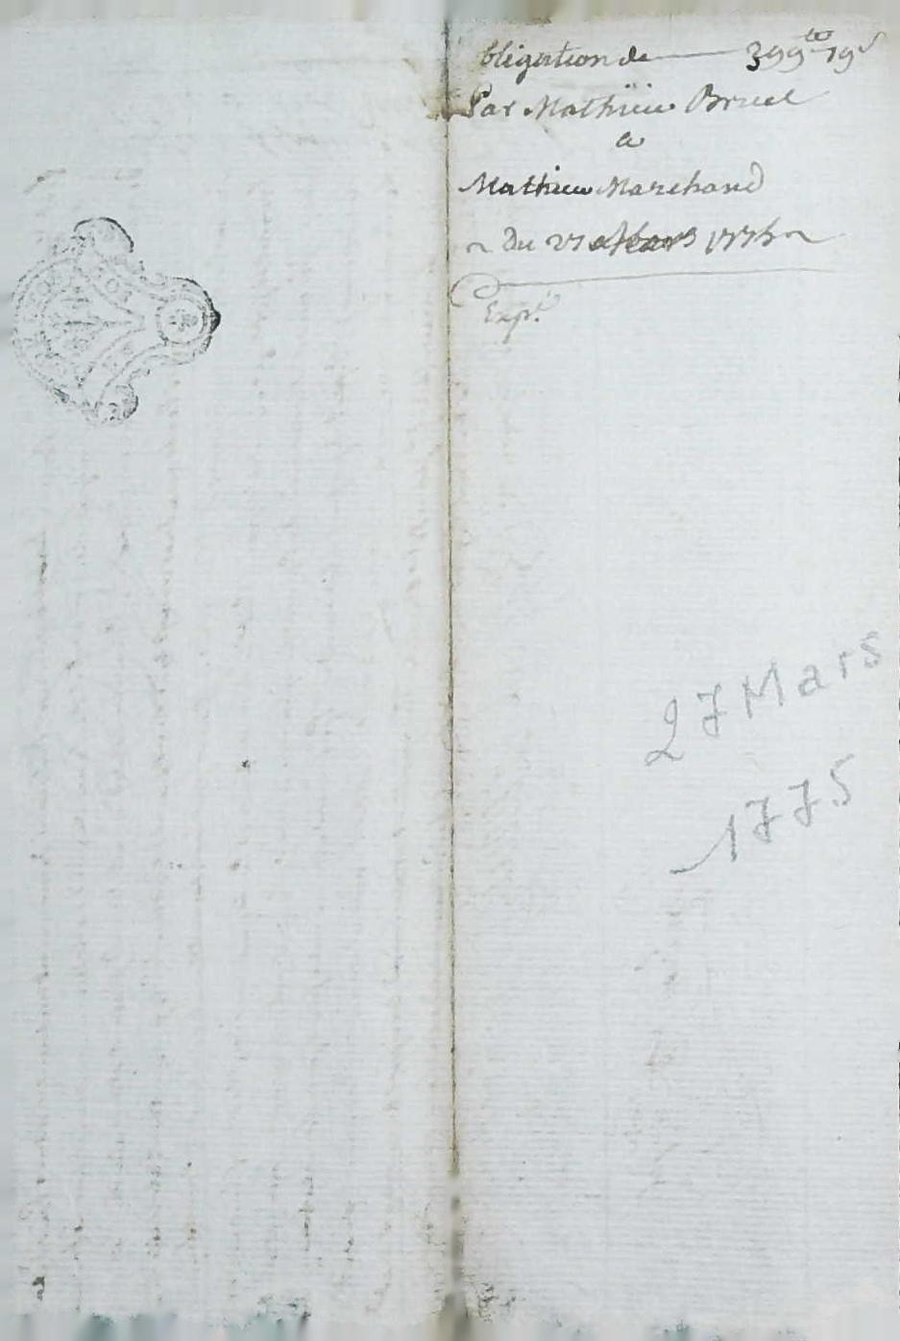 bligation de 399ᵗᵗ 19ˢ
Par Mathïeu Bruel
a
Mathieu Marchand
Du 27 Mars 1775
Expᵉ
27 Mars
1775